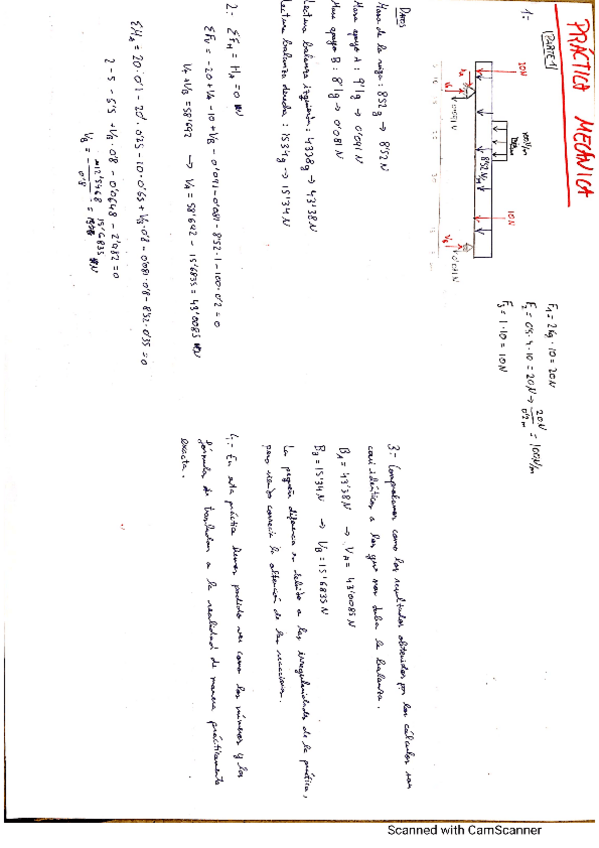 PRÁCTICA MECÁNICA
1=
PARTE 1
20N
100N/m
10N
8'52 N/m
0'091N
0'081N
F₁ = 2kg · 10 = 20N
F₂ = 0'5 · 4 · 10 = 20N → 20N/0'2m = 100N/m
F₃ = 1 · 10 = 10N
DATOS
Masa de la viga: 852g → 8'52N
Masa apoyo A: 9'1g → 0'091N
Masa apoyo B: 8'1g → 0'081N
Lectura balanza izquierda: 4338g → 43'38N
Lectura balanza derecha: 1534g → 15'34N
2.- ΣF_H = H_A = 0 N
ΣF_V = -20+V_A-10+V_B-0'091-0'081-8'52·1-100·0'2 = 0
V_A+V_B = 58'692 → V_A = 58'692 - 15'6835 = 43'0085 N
ΣM_A = 20·0'1-20·0'25-10·0'65+V_B·0'8-0'081·0'8-8'52·0'35=0
2-5-5'5+V_B·0'8-0'0648-2'982=0
V_B = 12'5468/0'8 = 15'6835 N
3.- Comprobamos como los resultados obtenidos por los cálculos son
casi idénticos a los que nos daba la balanza.
B_A = 43'38N → V_A = 43'0085N
B_B = 15'34N → V_B = 15'6835N
La pequeña diferencia es debido a las irregularidades de la práctica,
pero siendo correcta la obtención de las reacciones.
4.- En esta práctica hemos podido ver como los números y las
fórmulas se trasladan a la realidad de manera prácticamente
exacta.
Scanned with CamScanner